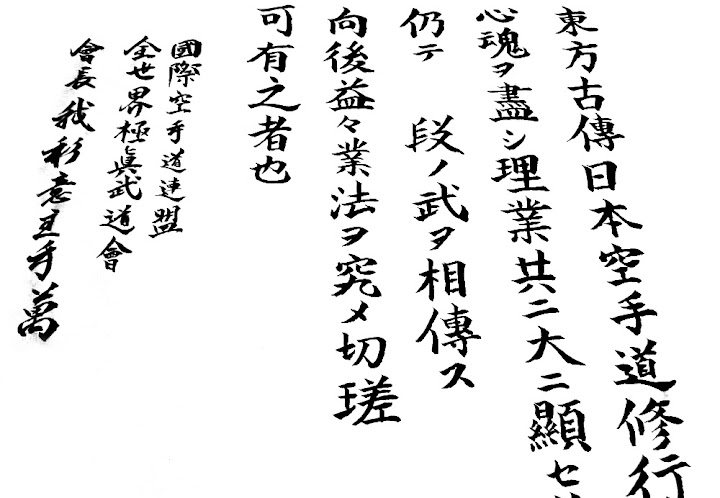 東方古傳日本空手道修行
心魂ヲ盡シ理業共ニ大ニ顯セ
仍テ 段ノ武ヲ相傳ス
向後益々業法ヲ究メ切瑳
可有之者也
國際空手道連盟
全世界極真武道會
會長